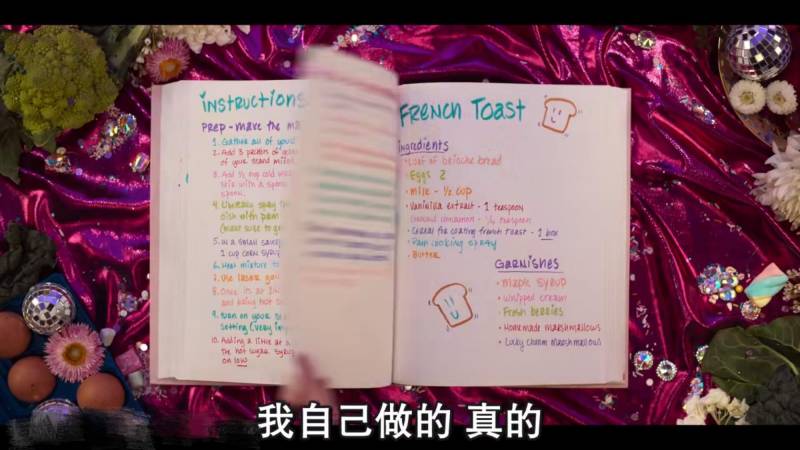 INSTRUCTIONS
PREP - make the ma
1. Gather all of your
2. Add 3 packets of
of your stand
3. Add ½ cup cold
stir with a
spoon.
4. Liberally spray
dish with pam
(make sure to
5. In a small
1 cup corn syrup
6. Heat mixture to
7. Use
8. Once its at
and being hot
9. Turn on your
setting (very
10. Adding a little at a
the hot sugar syrup
on low
FRENCH TOAST
Ingredients
• Loaf of brioche bread
• Eggs 2
• Milk - ½ cup
• Vanilla extract - 1 teaspoon
Ground cinnamon - teaspoon
• Cereal for coating french toast - 1 box
• Pam cooking spray
• Butter
GARNISHES
• Maple syrup
• whipped cream
• Fresh berries
• Homemade marshmallows
• Lucky charm marshmallows
我自己做的 真的